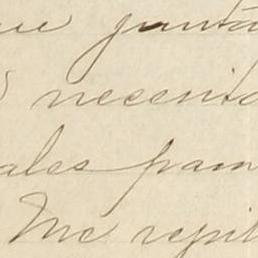 que junta
necesita
ales para
Me repit